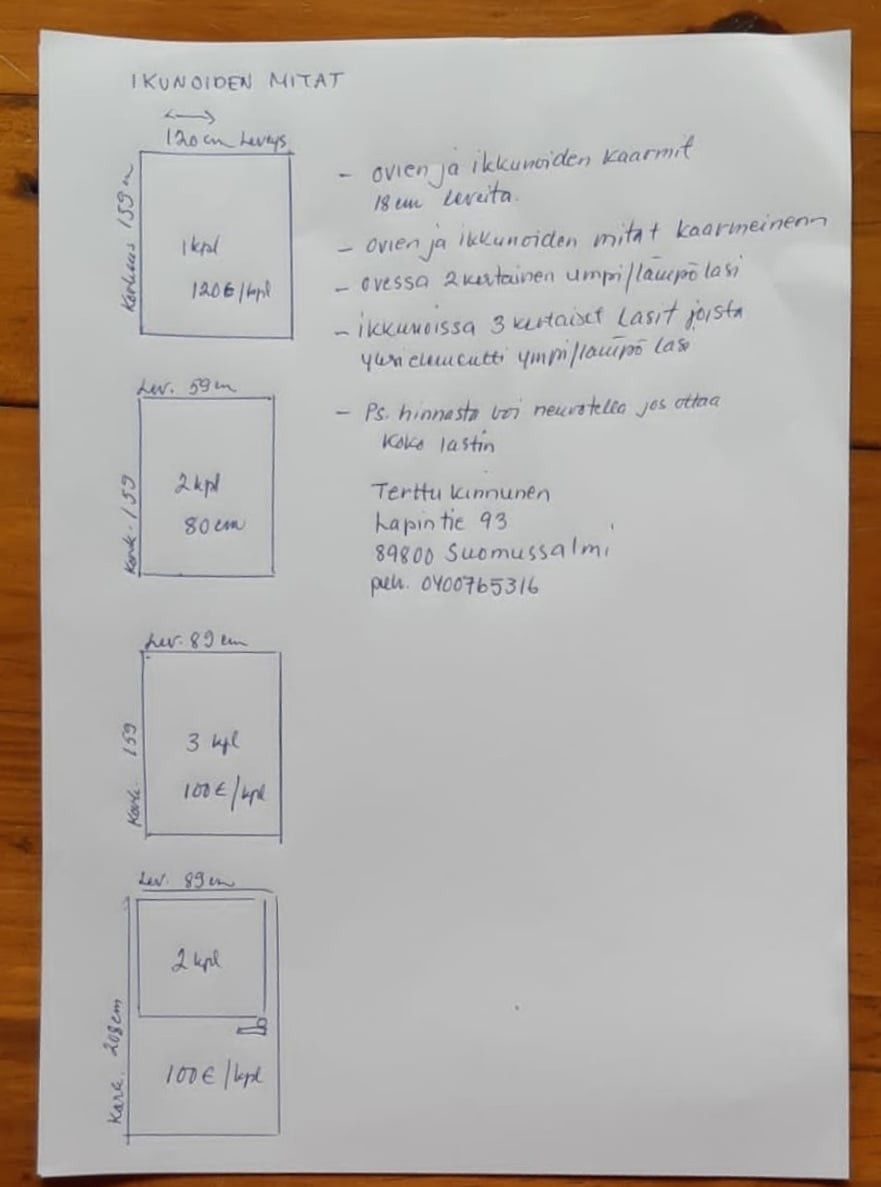 IKUNOIDEN MITAT
120 cm Leveys
Korkeus 159 m
1 kpl
120 € / kpl
- ovien ja ikkunoiden kaarmit
18 cm leveita.
- ovien ja ikkunoiden mitat kaarmeinenn
- ovessa 2 kertainen umpi/lämpö lasi
- ikkunoissa 3 kertaiset Lasit joista
ympi/lämpö lasi
- Ps. hinnasta voi neuvotella jos ottaa
Koko lastin
Terttu Kinnunen
Lapintie 93
89800 Suomussalmi
puh. 0400765316
Lev. 59 m
Kork. 159
2 kpl
80 cm
Lev. 89 cm
Kork. 159
3 kpl
100 € / kpl
Lev. 89 cm
Kork. 208 cm
2 kpl
100 € / kpl